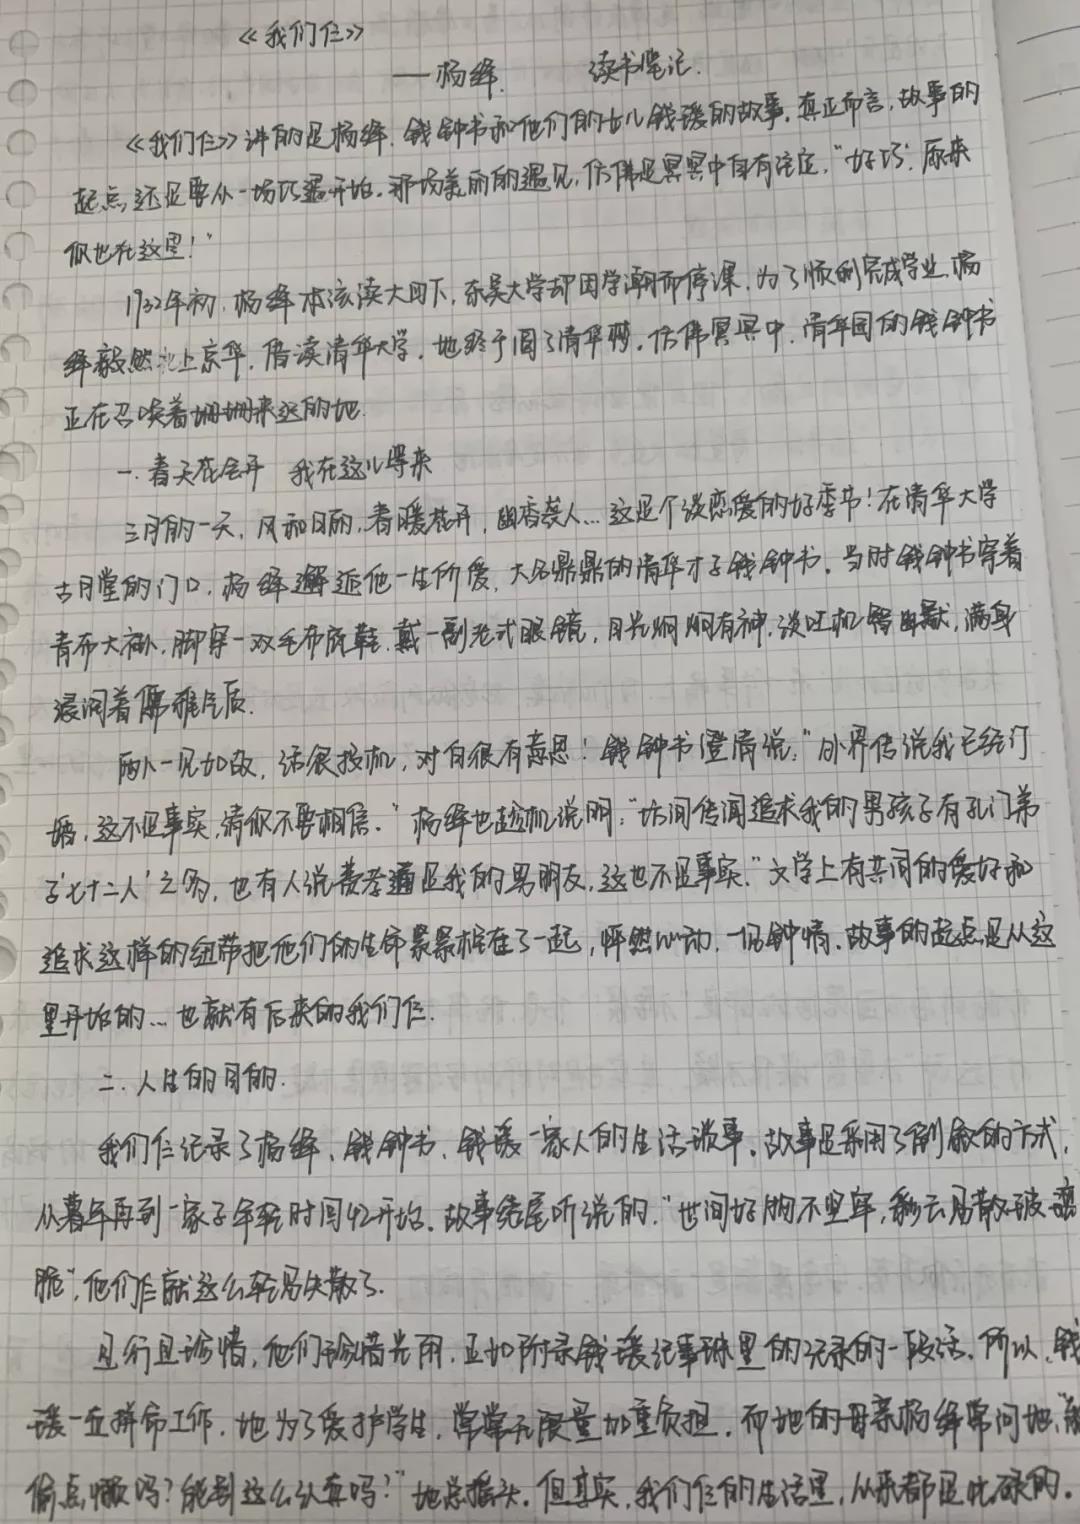 《我们仨》
——杨绛 读书笔记.
《我们仨》讲的是杨绛.钱钟书和他们的女儿钱瑗的故事.真正而言,故事的
起点,还是要从一场巧遇开始.那场美丽的遇见,仿佛是冥冥中自有注定,"好巧,原来
你也在这里!"
1932年初,杨绛本该读大四下,东吴大学却因学潮而停课.为了顺利完成学业,杨
绛毅然北上京华,借读清华大学.她终于圆了清华梦.仿佛冥冥中,清华园的钱钟书
正在召唤着姗姗来迟的她.
一.春天花会开 我在这儿等来
三月的一天,风和日丽,春暖花开,幽香袭人...这是个谈恋爱的好季节!在清华大学
古月堂的门口,杨绛邂逅他一生所爱,大名鼎鼎的清华才子钱钟书.当时钱钟书穿着
青布大褂,脚穿一双毛布底鞋.戴一副老式眼镜,目光炯炯有神.谈吐机智幽默,满身
浸润着儒雅气质.
两人一见如故,话很投机,对白很有意思!钱钟书澄清说:"外界传说我已经订
婚,这不是事实,请你不要相信."杨绛也趁机说明:"坊间传闻追求我的男孩子有孔门弟
子'七十二人'之多,也有人说费孝通是我的男朋友,这也不是事实."文学上有共同的爱好和
追求这样的纽带把他们的生命紧紧栓在了一起,怦然心动,一见钟情.故事的起点是从这
里开始的...也就有后来的我们仨.
二.人生的目的.
我们仨记录了杨绛、钱钟书、钱瑗一家人的生活琐事.故事是采用了倒叙的方式,
从暮年再到一家子年轻时间开始.故事结尾所说的,"世间好物不坚牢,彩云易散琉璃
脆",他们仨就这么轻易失散了.
且行且珍惜,他们珍惜光阴.正如附录钱瑗记事珠里的记录的一段话.所以,钱
瑗一直拼命工作.她为了爱护学生,常常无限量加重负担.而她的母亲杨绛常问她,"能
偷点懒吗?能别这么认真吗?"她总摇头.但其实,我们仨的生活里,从来都是忙碌的.